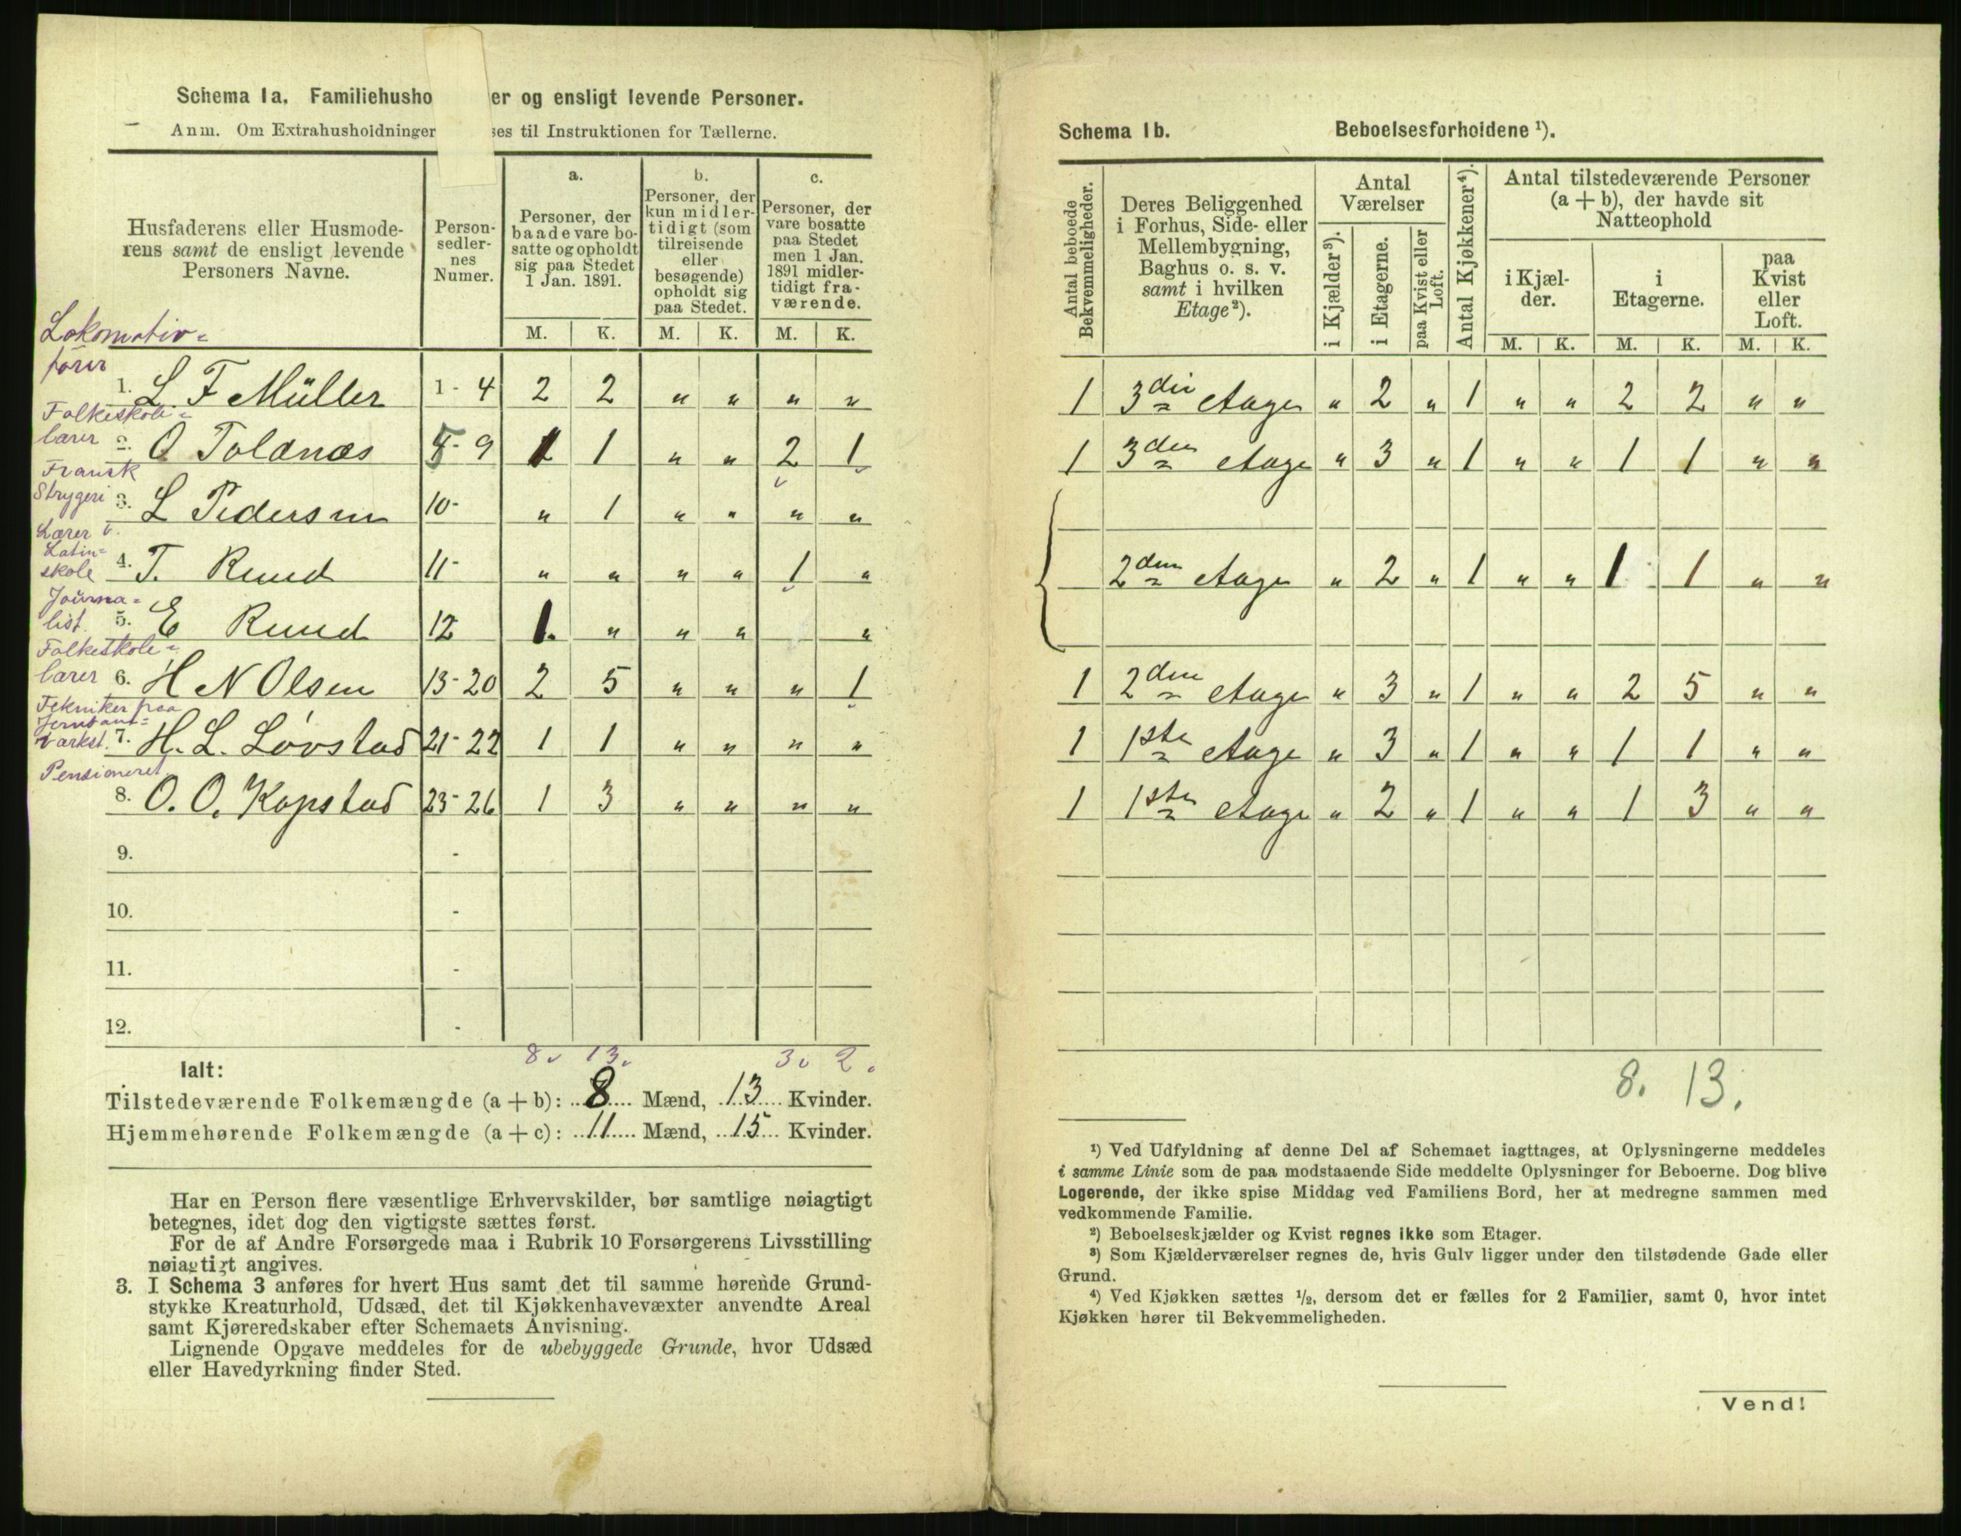 Schema 1a. Familiehusho er og ensligt levende Personer.
Anm. Om Extrahusholdninger ses til Instruktionen for Tællerne.
Husfaderens eller Husmode-
rens samt de ensligt levende
Personers Navne.
Person-
sedler-
nes
Numer.
a.
Personer, der
baade vare bo-
satte og opholdt
sig paa Stedet
1 Jan. 1891.
b.
Personer, der
kun midler-
tidigt (som
tilreisende
eller
besøgende)
opholdt sig
paa Stedet.
c.
Personer, der
vare bosatte
paa Stedet
men 1 Jan.
1891 midler-
tidigt fra-
værende.
M. K. M. K. M. K.
Lokomativ=
fører
1. L. F Müller 1-4 2 2 " " " "
Folkeskole=
lærer
2. O Toldnæs 5-9 1 1 " " 2 1
Fransk
Strygeri
3. L Pedersen 10- " 1 " " " "
Lærer v.
Latin=
skole
4. T. Ruud 11- " " " " 1 "
Journa=
list
5. E Ruud 12 1. " " " "
Folkeskole=
lærer
6. H N Olsen 13-20 2 5 " " " 1
Tekniker paa
Jernbane=
værkst.
7. H. L. Løvstad 21-22 1 1 " " " "
Pensioneret
8. O. O. Kopstad 23-26 1 3 " " " "
9. -
10. -
11. -
12. -
8. 13. 3. 2.
Ialt:
Tilstedeværende Folkemængde (a + b): 8 Mænd, 13 Kvinder.
Hjemmehørende Folkemængde (a + c): 11 Mænd, 15 Kvinder.
Har en Person flere væsentlige Erhvervskilder, bør samtlige nøiagtigt
betegnes, idet dog den vigtigste sættes først.
For de af Andre Forsørgede maa i Rubrik 10 Forsørgerens Livsstilling
nøiagtigt angives.
3. I Schema 3 anføres for hvert Hus samt det til samme hørende Grund-
stykke Kreaturhold, Udsæd, det til Kjøkkenhavevæxter anvendte Areal
samt Kjøreredskaber efter Schemaets Anvisning.
Lignende Opgave meddeles for de ubebyggede Grunde, hvor Udsæd
eller Havedyrkning finder Sted.
Schema 1b. Beboelsesforholdene ¹).
Antal beboede
Bekvemmeligheder.
Deres Beliggenhed
i Forhus, Side- eller
Mellembygning,
Baghus o. s. v.
samt i hvilken
Etage²).
Antal
Værelser
i Kjælder³).
i Etagerne.
paa Kvist eller
Loft.
Antal Kjøkkener⁴).
Antal tilstedeværende Personer
(a + b), der havde sit
Natteophold
i Kjæl-
der.
i
Etagerne.
paa
Kvist
eller
Loft.
M. K. M. K. M. K.
1 3die etage " 2 " 1 " " 2 2 " "
1 3den etage " 3 " 1 " " 1 1 " "
2den etage " 2 " 1 " " 1 1 " "
1 2den etage " 3 " 1 " " 2 5 " "
1 1ste etage " 3 " 1 " " 1 1 " "
1 1ste etage " 2 " 1 " " 1 3 " "
8. 13.
¹) Ved Udfyldning af denne Del af Schemaet iagttages, at Oplysningerne meddeles
i samme Linie som de paa modstaaende Side meddelte Oplysninger for Beboerne. Dog blive
Logerende, der ikke spise Middag ved Familiens Bord, her at medregne sammen med
vedkommende Familie.
²) Beboelseskjælder og Kvist regnes ikke som Etager.
³) Som Kjælderværelser regnes de, hvis Gulv ligger under den tilstødende Gade eller
Grund.
⁴) Ved Kjøkken sættes ½, dersom det er fælles for 2 Familier, samt 0, hvor intet
Kjøkken hører til Bekvemmeligheden.
Vend!